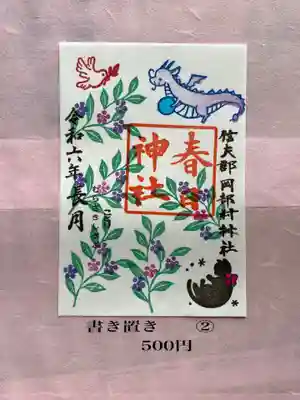 信夫郡岡部村神社
春日
神社
令和六年長月
書き置き ②
500円